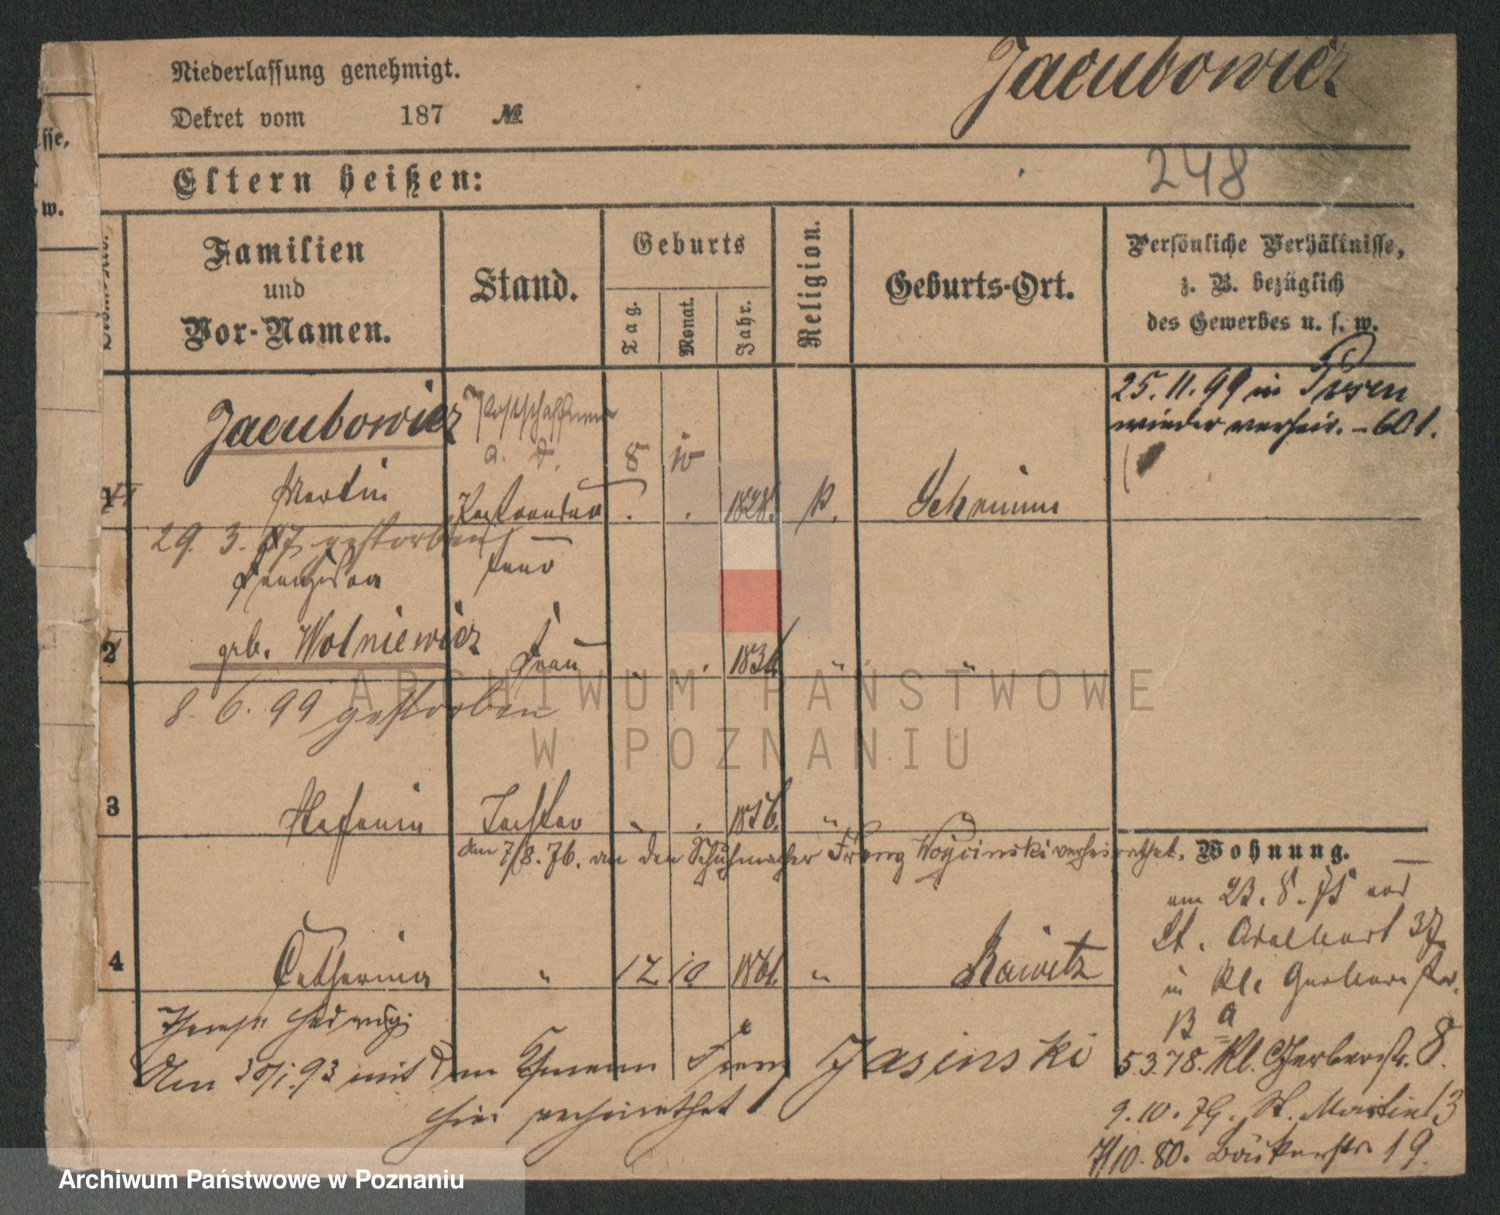 Niederlassung genehmigt.
Jacubowicz
Dekret vom 187 №
248
Eltern heißen:
sse,
w.
Familien
und
Vor-Namen.
Stand.
Geburts
Tag.
Monat.
Jahr.
Religion.
Geburts-Ort.
Persönliche Verhältnisse,
z. B. bezüglich
des Gewerbes u. s. w.
25. 11. 99 in Posen
wieder verheir. - 601.
Jacubowicz
a. D.
8 10
1
Martin
1828.
k.
Schrimm
29. 3. 87 gestorben
Franziska
2
geb. Wolniewicz
Frau
" "
8. 6. 99 gestorben
3
Stefania
Tochter
1856.
"
den 7/8. 76. an den Schuhmacher Franz Woycinski verheirathet.
Wohnung.
am 23. 8. 75 von
St. Adalbert 37
4
Catharina
"
12 10 1861.
"
Rawitz
in Kl. Gerberstr.
Hedwig
Am 30/1. 93 mit dem Franz Jasinski
hier verheirathet
5.3.78. Kl. Gerberstr. 8.
9. 10. 79. St. Martin 13
7/10. 80. Bäckerstr. 19.
ARCHIWUM PAŃSTWOWE
W POZNANIU
Archiwum Państwowe w Poznaniu